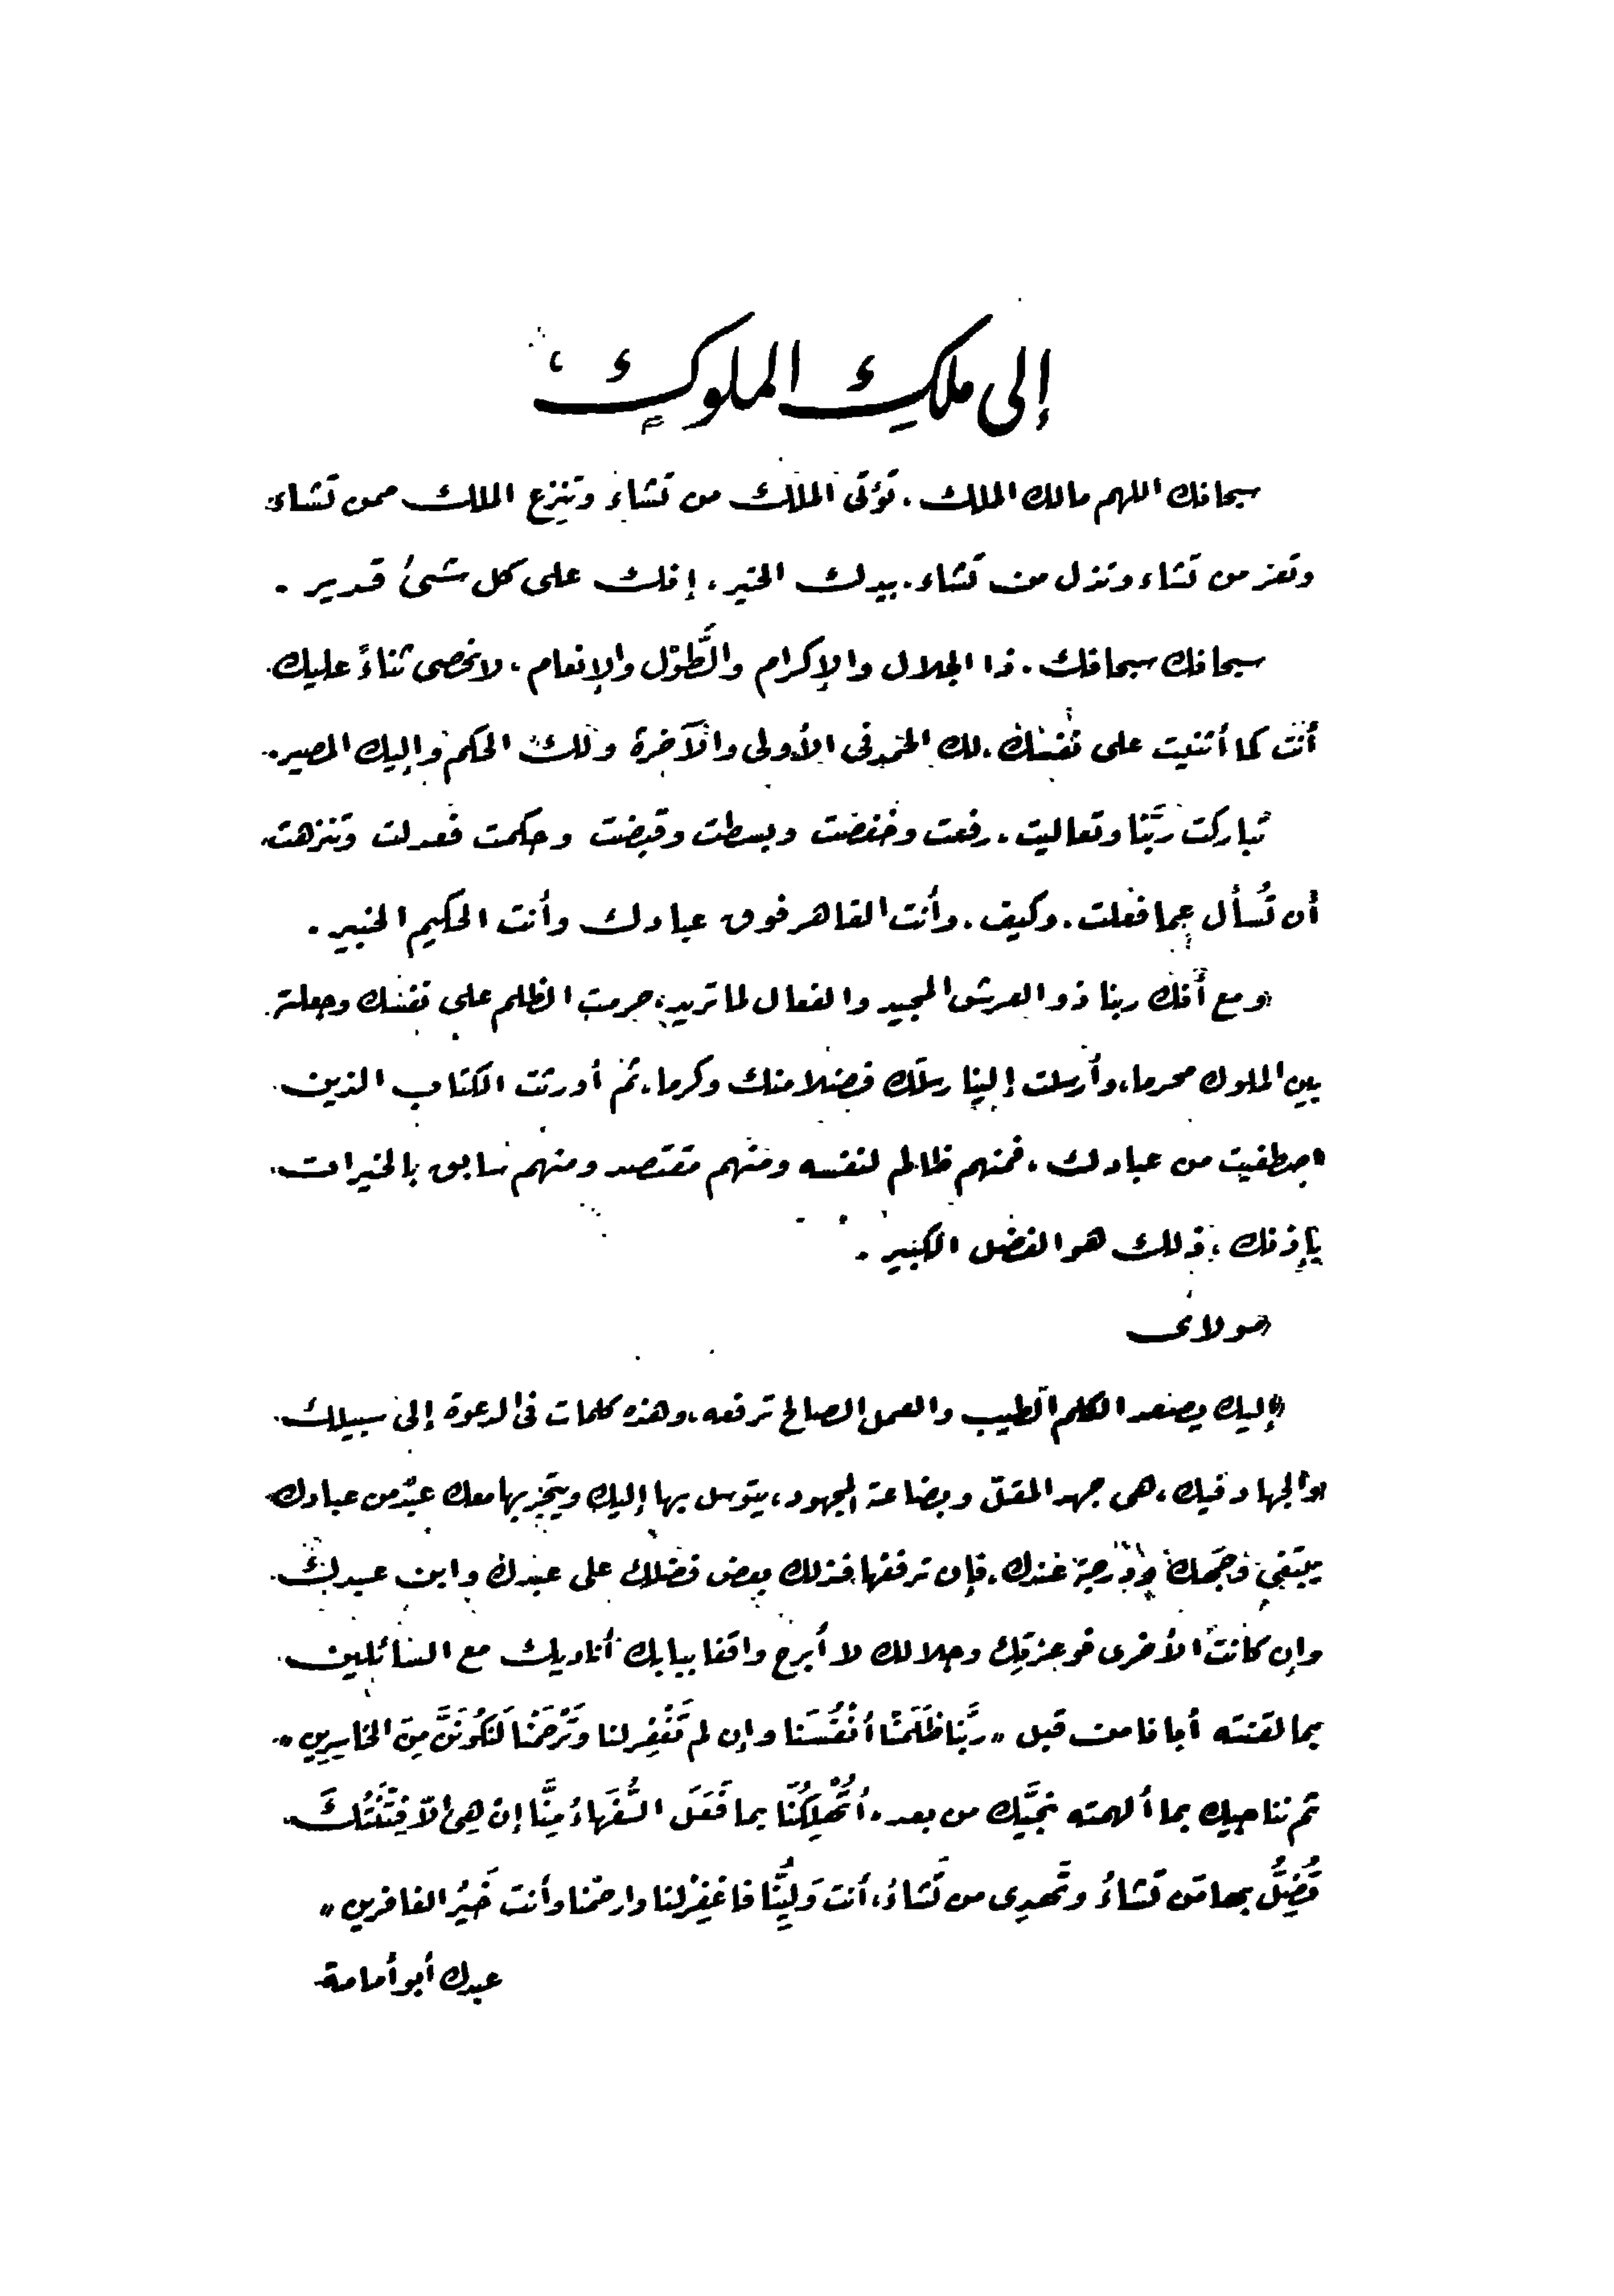 إلى ملك الملوك
سبحانك اللهم مالك الملك، تؤتى الملك من تشاء وتنزع الملك ممن تشاء
وتعز من تشاء وتذل من تشاء، بيدك الخير، إنك على كل شىء قدير.
سبحانك سبحانك، ذا الجلال والإكرام والطَّوْل والإنعام، لا نحصى ثناءً عليك
أنت كما أثنيت على نفسك، لك الحمد فى الأولى والآخرة ولك الحكم وإليك المصير.
تباركت ربَّنا وتعاليت، رفعت وخفضت وبسطت وقبضت وحكمت فعدلت وتنزهت
أن تُسأل عما فعلت، وكيف، وأنت القاهر فوق عبادك وأنت الحكيم الخبير.
ومع أنك ربنا ذو العرش المجيد والفعال لما تريد، حرمت الظلم على نفسك وجعلته
بين الملوك محرما، وأرسلت إلينا رسلك فضلا منك وكرما، ثم أورثت الكتاب الذين
اصطفيت من عبادك، فمنهم ظالم لنفسه ومنهم مقتصد ومنهم سابق بالخيرات
بإذنك، ذلك هو الفضل الكبير.
مولاى
إليك يصعد الكلم الطيب والعمل الصالح ترفعه، وهذه كلمات فى الدعوة إلى سبيلك
والجهاد فيك، هى جهد المقلّ وبضاعة المجهود، يتوسل بها إليك ويتجر بها معك عبدٌ من عبادك
يبتغى وجهك ودرجة عندك، فإن ترفعها فذلك بعض فضلك على عبدك وابن عبدك
وإن كانت الأخرى فوعزتك وجلالك لا أبرح واقفا ببابك أناديك مع السائلين
بما لقنته أبانا من قبل «ربَّنا ظَلَمْنَا أنْفُسَنا وإن لم تَغْفِر لنا وتَرْحَمْنا لَنَكُونَنَّ مِنَ الخاسِرِين»
ثم نناجيك بما ألهمته نجيَّك من بعد، أتُهْلِكُنَا بما فَعَلَ السُّفَهَاءُ مِنَّا إن هِىَ إلاّ فِتْنَتُكَ
تُضِلُّ بها مَن تَشاءُ وتَهدِى من تَشاءُ، أنت وَلِيُّنا فاغْفِرْ لنا وارحمْنا وأنت خَيْرُ الغافرين»
عبدك أبو أمامة